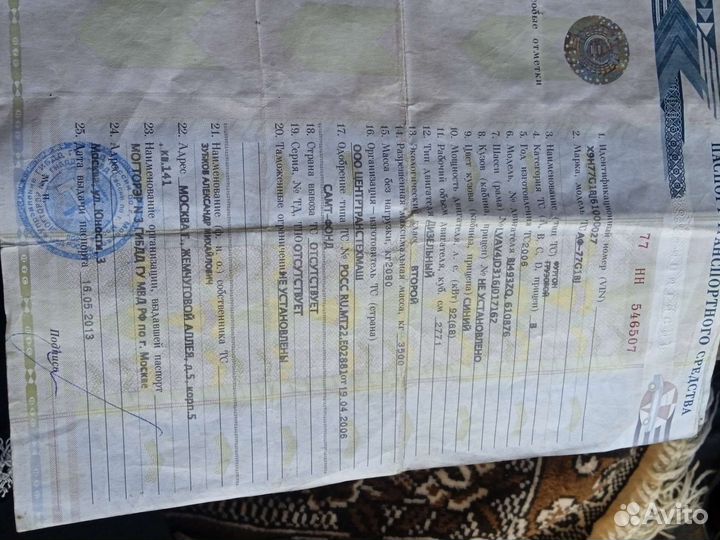 ПАСПОРТ ТРАНСПОРТНОГО СРЕДСТВА
77 НН 546507
1. Идентификационный номер (VIN)
X9H77G18J61000027
2. Марка, модель ТС АФ-77G18J
3. Наименование (тип ТС) ФУРГОН
ГРУЗОВОЙ
4. Категория ТС (А, В, С, D, прицеп) В
5. Год изготовления ТС 2006
6. Модель, № двигателя BJ493ZQ, 610876
7. Шасси (рама) № LVAV4D316J017162
8. Кузов (кабина, прицеп) № НЕ УСТАНОВЛЕНО
9. Цвет кузова (кабины, прицепа) СИНИЙ
10. Мощность двигателя, л. с. (кВт) 92(68)
11. Рабочий объем двигателя, куб. см 2771
12. Тип двигателя ДИЗЕЛЬНЫЙ
13. Экологический класс ВТОРОЙ
14. Разрешенная максимальная масса, кг 3500
15. Масса без нагрузки, кг 2090
16. Организация—изготовитель ТС (страна)
ООО ЦЕНТРТРАНСТЕХМАШ
17. Одобрение типа ТС № РОСС RU.МТ22.Е02881 от 19.04.2006
САМТ-ФОНД
18. Страна вывоза ТС ОТСУТСТВУЕТ
19. Серия, № ТД, ТПО ОТСУТСТВУЕТ
20. Таможенные ограничения НЕ УСТАНОВЛЕНЫ
21. Наименование (ф. и. о.) собственника ТС
ЗУБКОВ АЛЕКСАНДР МИХАЙЛОВИЧ
22. Адрес МОСКВА Г., ЖЕМЧУГОВОЙ АЛЛЕЯ, д.5, корп.5
, кв.141
23. Наименование организации, выдавшей паспорт
МОТТОРЭР №3 ГИБДД ГУ МВД РФ по г. Москве
24. Адрес
Москва, ул. Юности, 3
25. Дата выдачи паспорта 16.05.2013
М. П.
Подпись
особые отметки
Avito